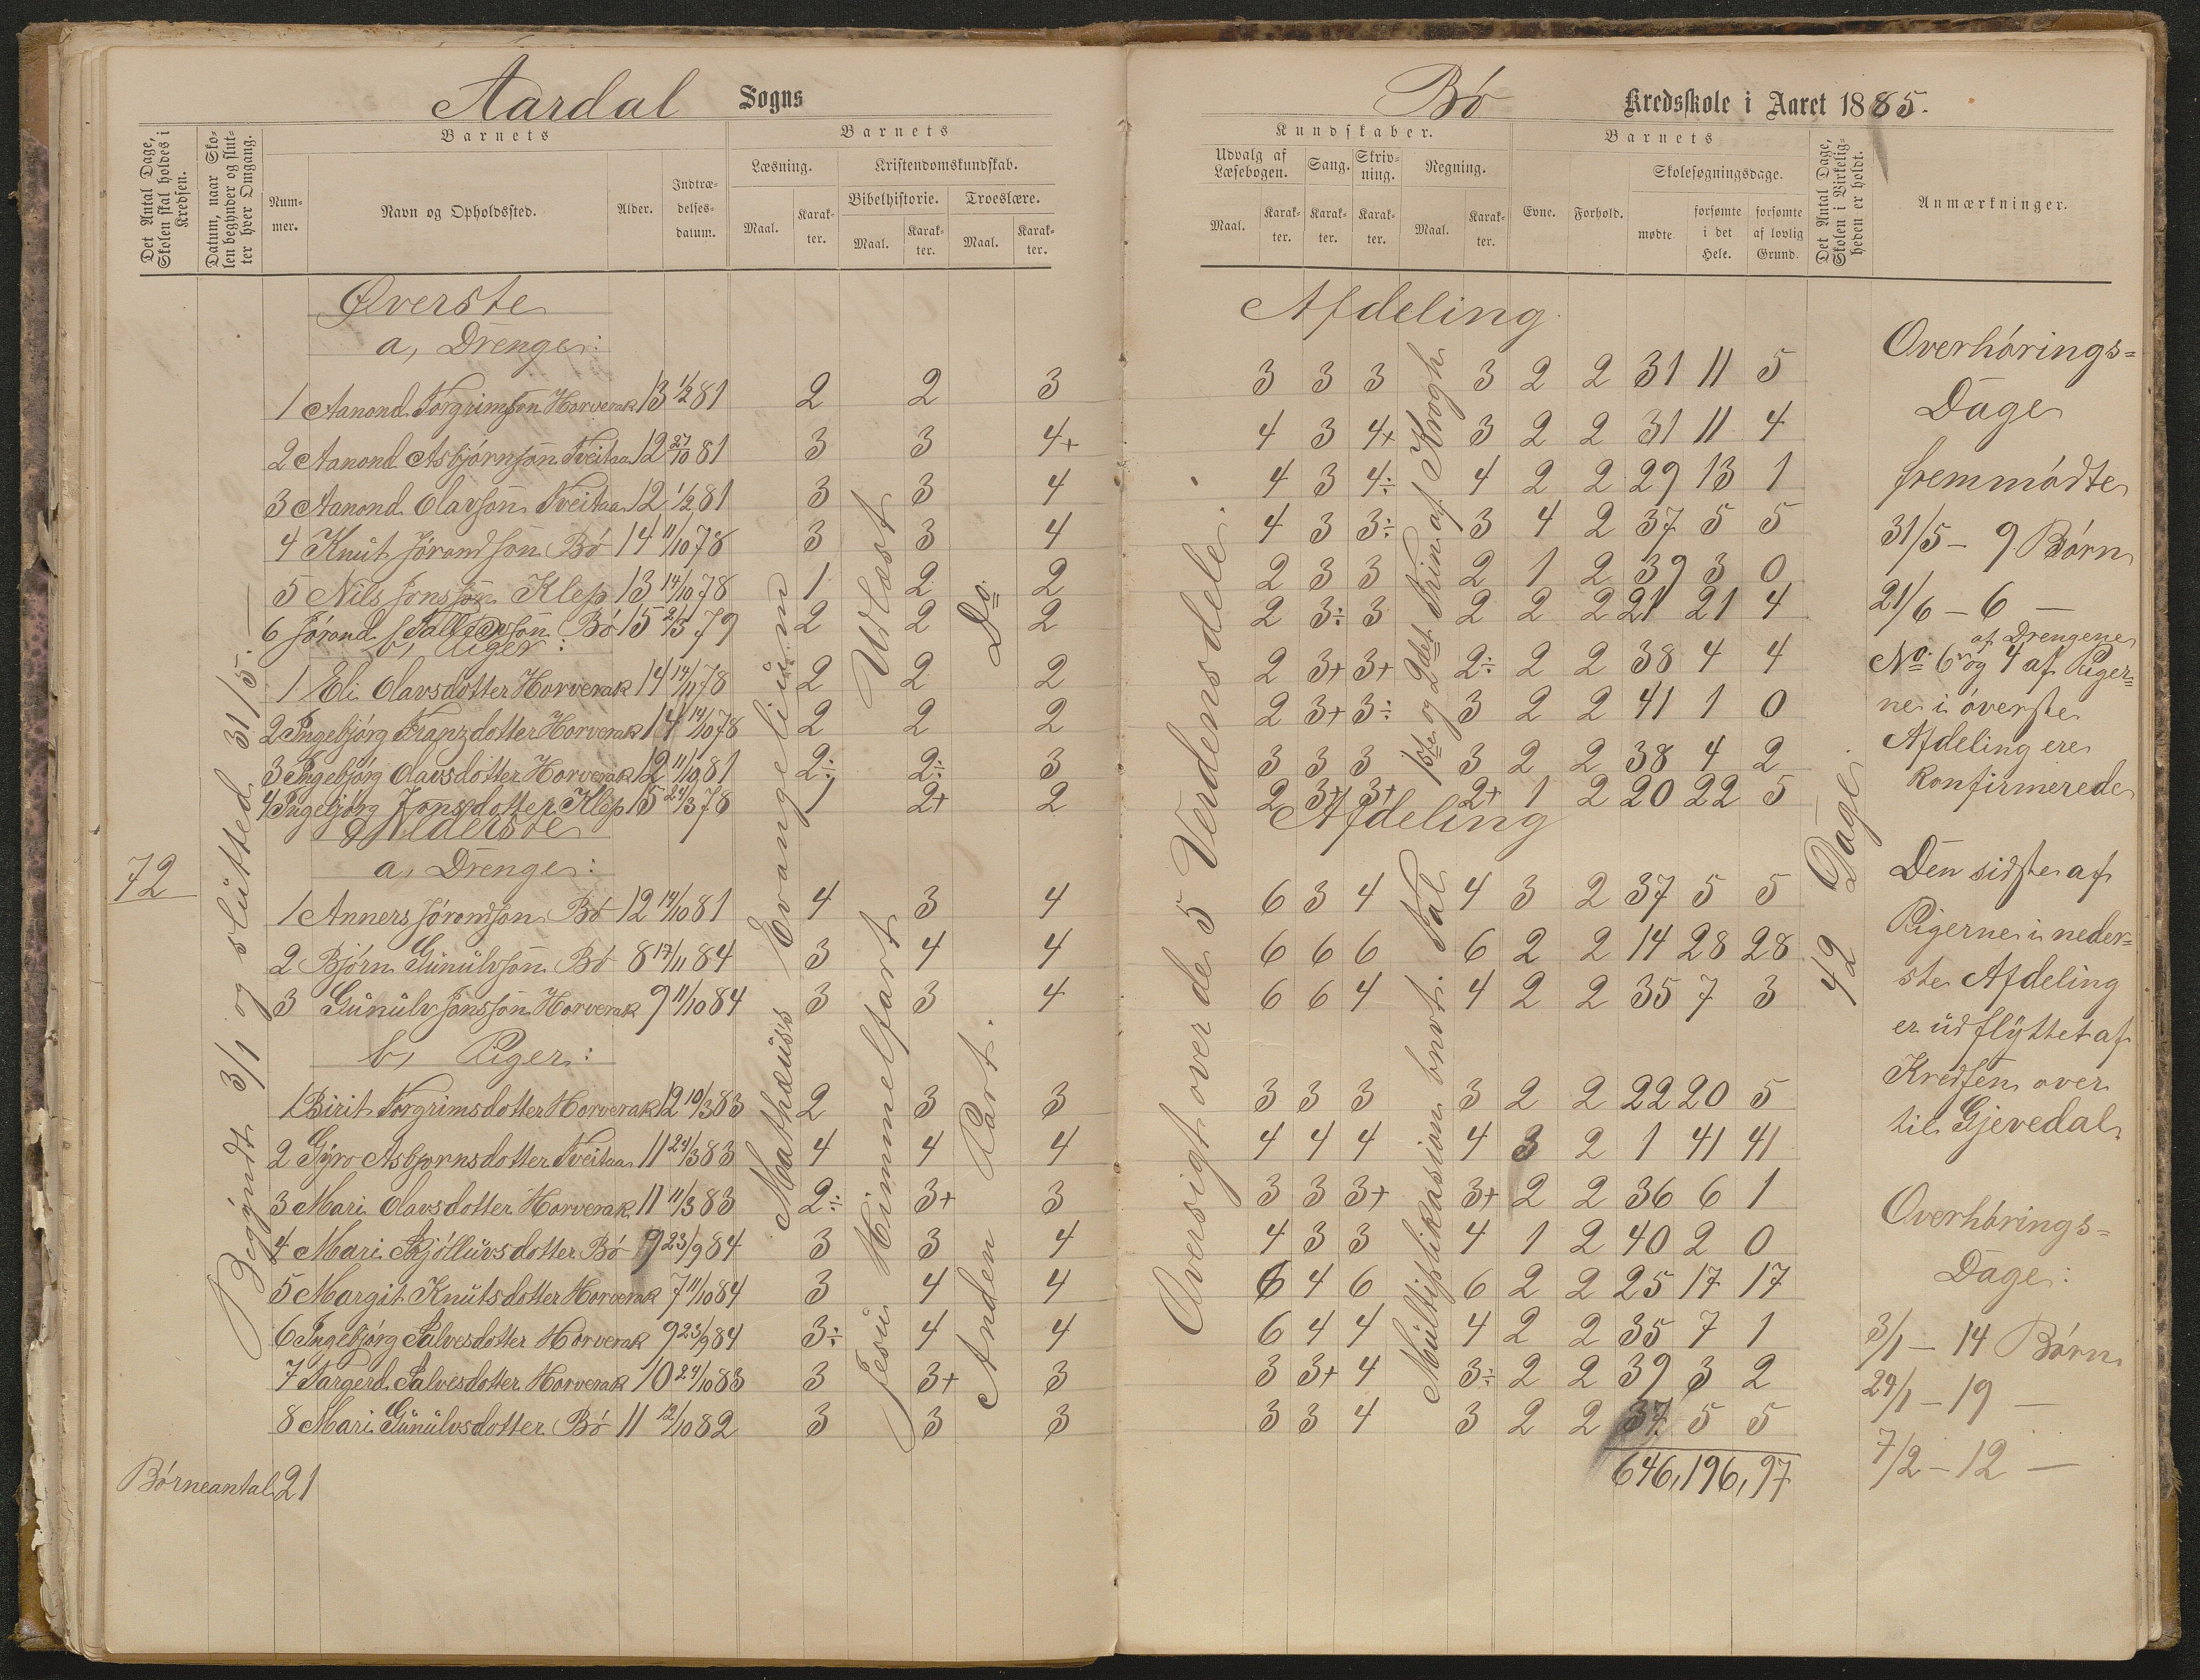 Aardal Sogns
Det Antal Dage, Skolen skal holdes i Kredsen.
Datum, naar Skolen begynder og slutter hver Omgang.
Barnets
Nummer.
Navn og Opholdssted.
Alder.
Indtrædelsesdatum.
Barnets
Læsning.
Kristendomskundskab.
Bibelhistorie.
Troeslære.
Maal.
Karakter.
Maal.
Karakter.
Maal.
Karakter.
Øverste
a, Drenge:
1 Aanond Torgrimsson Horverak 13 1/2 81 2 2 3
2 Aanond Asbjørnson Tveitaa 12 27/10 81 3 3 4+
3 Aanond Olavson Tveitaa 12 1/2 81 3 3 4
4 Knut Jørondson Bø 14 11/10 78 3 3 4
5 Nils Jonsson Klep 13 14/10 78 1 2 2
6 Jørond Salvesson Bø 15 2/5 79 2 2 2
b, Piger:
1 Eli Olavsdotter Horverak 14 14/11 78 2 2 2
2 Ingebjørg Franzdotter Horverak 14 14/10 78 2 2 2
3 Ingebjørg Olavsdotter Horverak 12 11/10 81 2÷ 2÷ 3
4 Ingebjørg Jonsdotter Klep 15 24/3 78 1 2+ 2
Nederste
a, Drenge:
1 Anners Jørondson Bø 12 14/10 81 4 3 4
2 Bjørn Gunulvson Bø 8 17/11 84 3 4 4
3 Gunulv Jonsson Horverak 9 11/10 84 3 3 4
b, Piger:
1 Birit Torgrimsdotter Horverak 12 10/3 83 2 3 3
2 Gyro Asbjornsdotter Tveitaa 11 24/3 83 4 4 4
3 Mari Olavsdotter Horverak 11 11/3 83 2÷ 3+ 3
4 Mari Skjølluvsdotter Bø 9 23/9 84 3 3 4
5 Margit Knutsdotter Horverak 7 11/10 84 3 4 4
6 Ingebjørg Salvesdotter Horverak 9 23/9 84 3÷ 4 4
7 Targerd Salvesdotter Horverak 10 24/10 83 3 3+ 3
8 Mari Gunulvsdotter Bø 11 12/10 82 3 3 3
Børneantal 21
72
Begyndt 3/1 og slutted 31/5. —
Mathæus's Evangelium
Jesu Himmelfart Udlæst
Anden Part. Do
Bø Kredsskole i Aaret 1885.
Kundskaber.
Udvalg af Læsebogen.
Sang.
Skrivning.
Regning.
Maal.
Karakter.
Karakter.
Karakter.
Maal.
Karakter.
Barnets
Evne.
Forhold.
Skolesøgningsdage.
mødte.
forsømte i det Hele.
forsømte af lovlig Grund.
Det Antal Dage, Skolen i Virkeligheden er holdt.
Anmærkninger.
Afdeling
3 3 3 3 2 2 31 11 5
4 3 4+ 3 2 2 31 11 4
4 3 4÷ 4 2 2 29 13 1
4 3 3÷ 3 4 2 37 5 5
2 3 3 2 1 2 39 3 0
2 3÷ 3 2 2 2 21 21 4
2 3+ 3+ 2÷ 2 2 38 4 4
2 3+ 3÷ 3 2 2 41 1 0
3 3 3 3 2 2 38 4 2
2 3+ 3+ 2+ 1 2 20 22 5
Afdeling
6 3 4 4 3 2 37 5 5
6 6 6 6 2 2 14 28 28
6 6 4 4 2 2 35 7 3
3 3 3 3 2 2 22 20 5
4 4 4 4 3 2 1 41 41
3 3 3+ 3+ 2 2 36 6 1
4 3 3 4 1 2 40 2 0
6 4 6 6 2 2 25 17 17
6 4 4 4 2 2 35 7 1
3 3+ 4 3÷ 2 2 39 3 2
3 3 4 3 2 2 37 5 5
646, 196, 97
Oversigt over de 5 Verdensdele.
1ste og 2det Trin af Krogh
Multiplikasion bnvt. Tal
42 Dage.
Overhørings-
Dage
fremmødte
31/5 – 9 Børn
21/6 – 6 —
af Drengene
No 6 og 4 af Piger-
ne i øverste
Afdeling ere
konfirmerede
Den sidste af
Pigerne i neder-
ste Afdeling
er udflyttet af
Kredsen over
til Gjevedal.
Overhørings-
Dage:
3/1 – 14 Børn
24/1 – 19 —
7/2 – 12 —